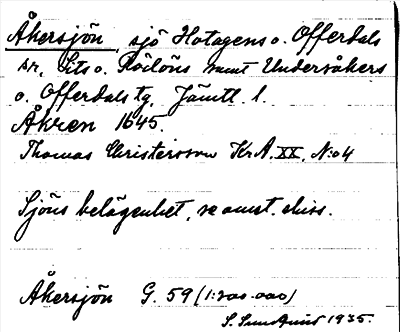 Åkersjön, sjö Hotagens o. Offerdals
sr, Lits o. Rödöns samt Undersåkers
o. Offerdals tg, Jämtl. l.
Åkren 1645.
Thomas Christersson Kr.A. XX, N:o 4
Sjöns belägenhet, se amst. skiss.
Åkersjön G. 59 (1:200.000)
S. Sundquist 1935.